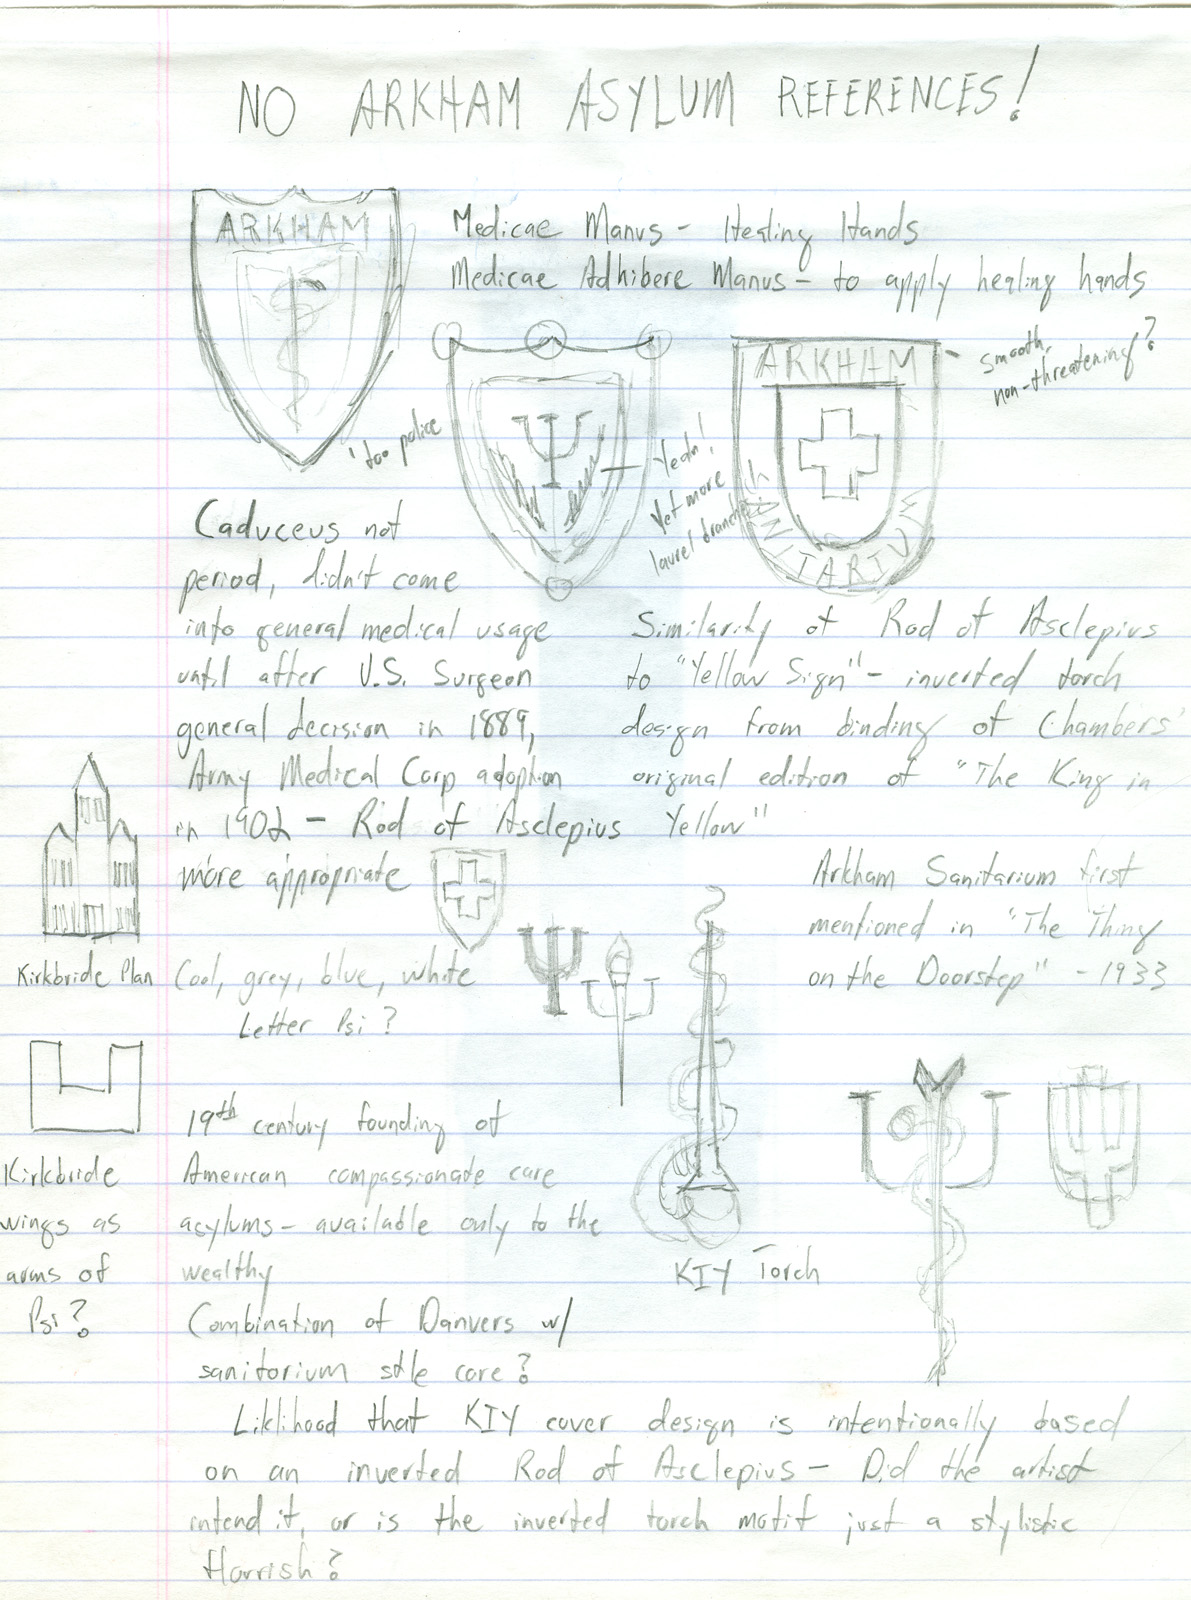 NO ARKHAM ASYLUM REFERENCES!
ARKHAM
Medicae Manus - Healing Hands
Medicae Adhibere Manus - to apply healing hands
ARKHAM
SANITARIUM
smooth,
non-threatening?
too police
Yeah!
Yet more
laurel branches
Caduceus not
period, didn't come
into general medical usage
until after U.S. Surgeon
general decision in 1889,
Army Medical Corp adoption
in 1902 - Rod of Asclepius
more appropriate
Similarity of Rod of Asclepius
to "Yellow Sign" - inverted torch
design from binding of Chambers'
original edition of "The King in
Yellow"
Arkham Sanitarium first
mentioned in "The Thing
on the Doorstep" - 1933
Kirkbride Plan
Cool, grey, blue, white
Letter Psi?
Kirkbride
wings as
arms of
Psi?
19th century founding of
American compassionate care
asylums - available only to the
wealthy
Combination of Danvers w/
sanitorium stle care?
KIY Torch
Liklihood that KIY cover design is intentionally based
on an inverted Rod of Asclepius - Did the artist
intend it, or is the inverted torch motif just a stylistic
flourish?